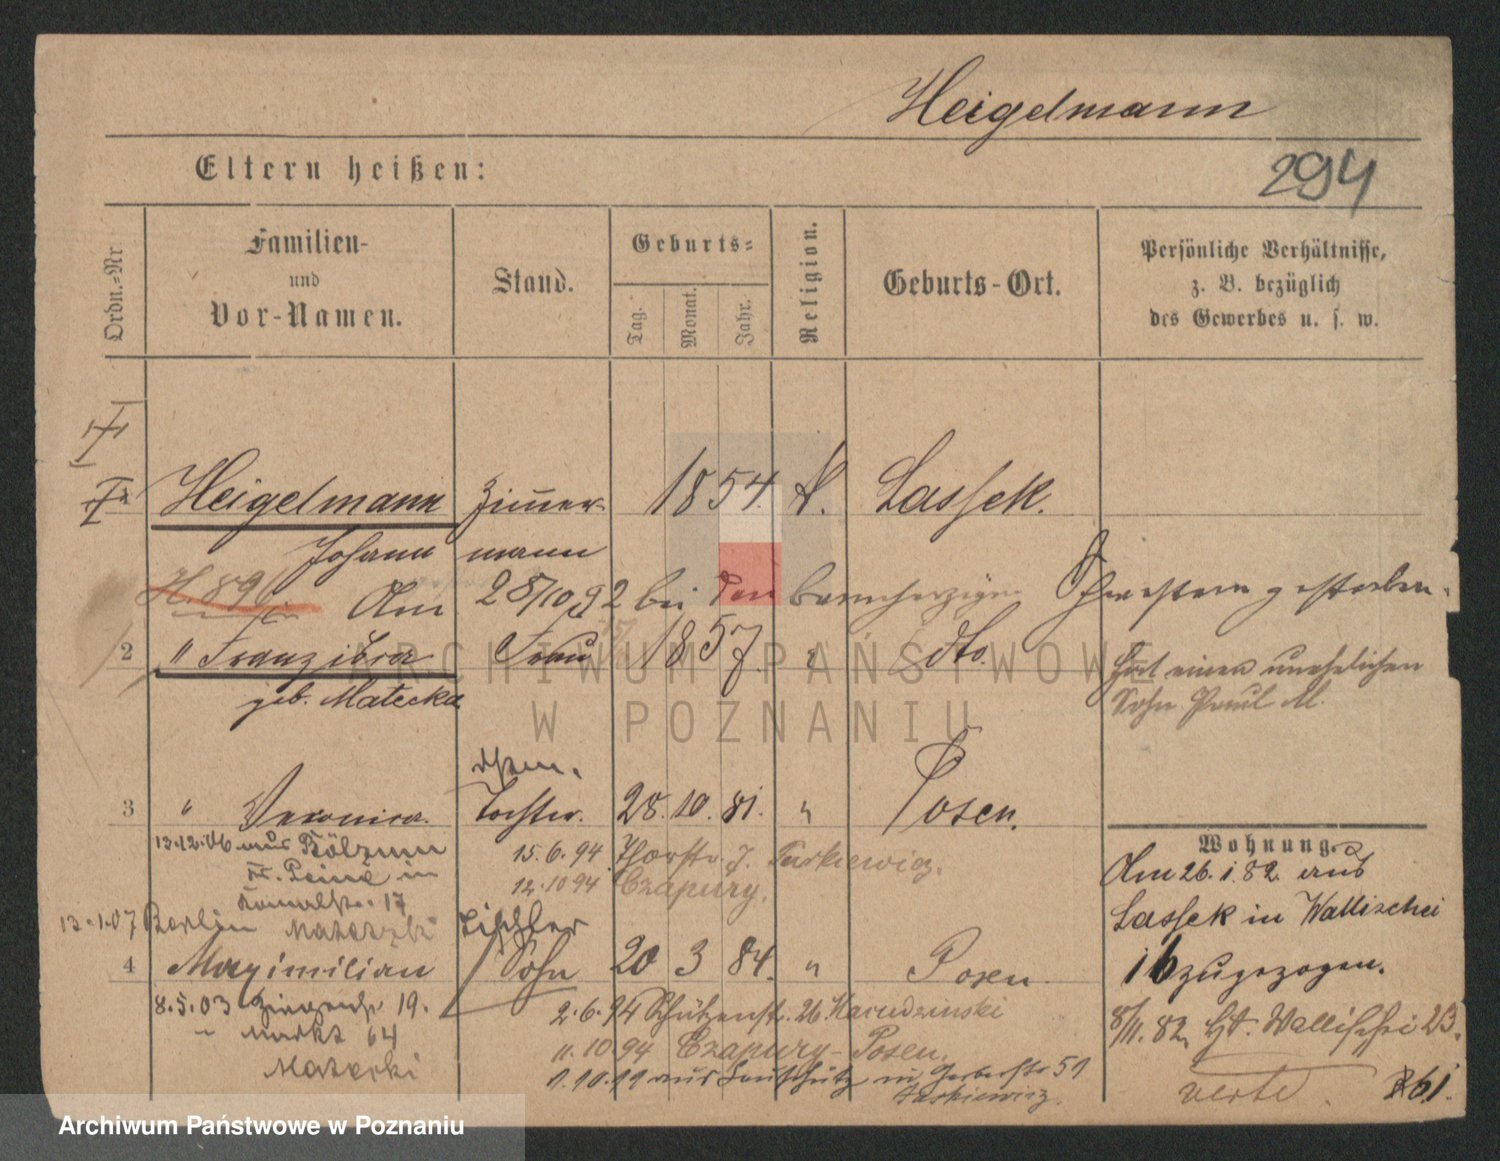 Heigelmann
294
Eltern heißen:
Ordn.-Nr
Familien-
und
Vor-Namen.
Stand.
Geburts-
Tag.
Monat.
Jahr.
Religion.
Geburts-Ort.
Persönliche Verhältnisse,
z. B. bezüglich
des Gewerbes u. s. w.
Heigelmann Zimmer- 1854. k. Lassek.
Johann mann
Am 28/10 92 bei den barmherzigen Schwestern gestorben.
2 " Franziska Frau 1857. " dto.
geb. Matecka
Hat einen unehelichen
Sohn Paul M.
3 " Veronica. Tochter. 28. 10. 81. " Posen.
13.12.06 aus
15.6.94 Thorstr. 7. Turkiewicz.
12.10 94 Czapury.
13.1.07 Berlin Materski
Tischler
4 Maximilian Sohn 20 3 84. " Posen.
8.5.03 19.
Markt 64
Materki
2.6.94 Schützenstr. 26.
11.10 94 Czapury-Posen.
1.10.11 aus in Gerberstr 51
Wohnung.
Am 26.1.82 aus
Lassek in Wallischei
16 zugezogen.
8/11.82. Wallischei 23.
verte.
ARCHIWUM PAŃSTWOWE
W POZNANIU
Archiwum Państwowe w Poznaniu